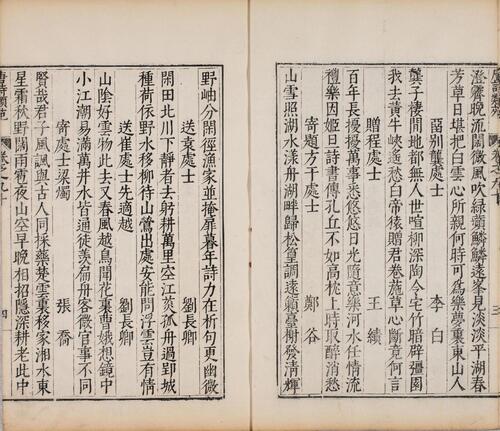 唐詩類苑 卷之九十 三
澄霽晚流闊微風吹綠蘋鱗鱗遠峯見淡淡平湖春
芳草日堪把白雲心所親何時可爲樂夢裏東山人
畱別龔處士 李白
龔子棲閒地都無人世喧柳深陶令宅竹暗辟疆園
我去黃牛峽遙愁白帝猿贈君卷葹草心斷竟何言
贈程處士 王績
百年長擾擾萬事悉悠悠日光隨意樂河水任情流
禮樂囚姬旦詩書傳孔丘不如高枕上時取醉消愁
寄題方干處士 鄭谷
山雪照湖水漾舟湖畔歸松篁調遠籟臺榭發淸輝
野岫分閒徑漁家並掩扉暮年詩力在析句更幽微
送袁處士 劉長卿
閑田北川下靜者去躬耕萬里空江菼孤舟過郢城
種荷依野水移柳待山鶯出處安能問浮雲豈有情
送崔處士先適越 劉長卿
山陰好雲物此去又春風越鳥聞花裏曹娥想鏡中
小江潮易滿萬井水皆通徒羨扁舟客微官事不同
寄處士梁燭 張喬
賢哉君子風諷與古人同採藥楚雲裏移家湘水東
星霜秋野闊雨雹夜山空早晚相招隱深耕老此中
唐詩類苑 卷之九十 四